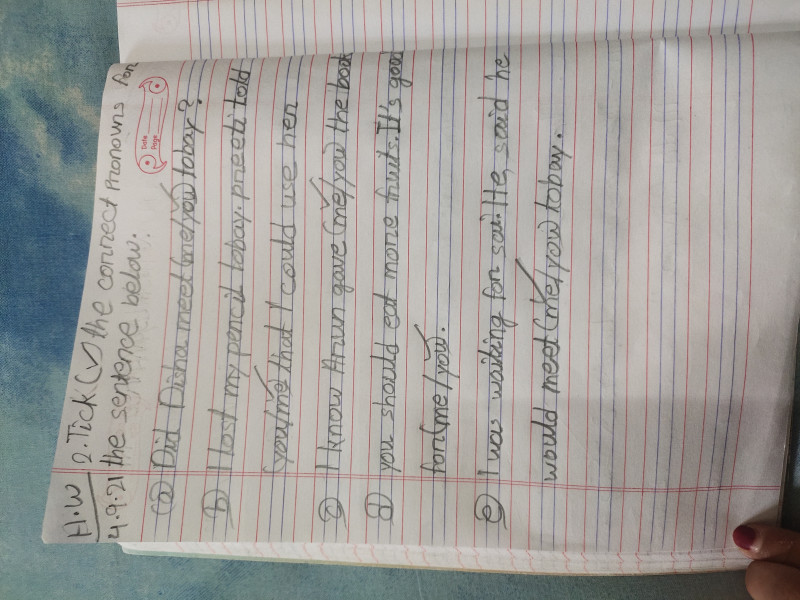 H.W 2. Tick (✓) the correct Pronouns for
4.9.21 the sentence below.
Date
Page
(a) Did Disha meet (me/you) today?
(b) I lost my pencil today. preeti told
(you/me that I could use her
(c) I know Arun gave (me/you the book
(d) you should eat more fruits. It's good
for (me/you.
(e) I was waiting for sai. He, said he
would meet (me/you today.